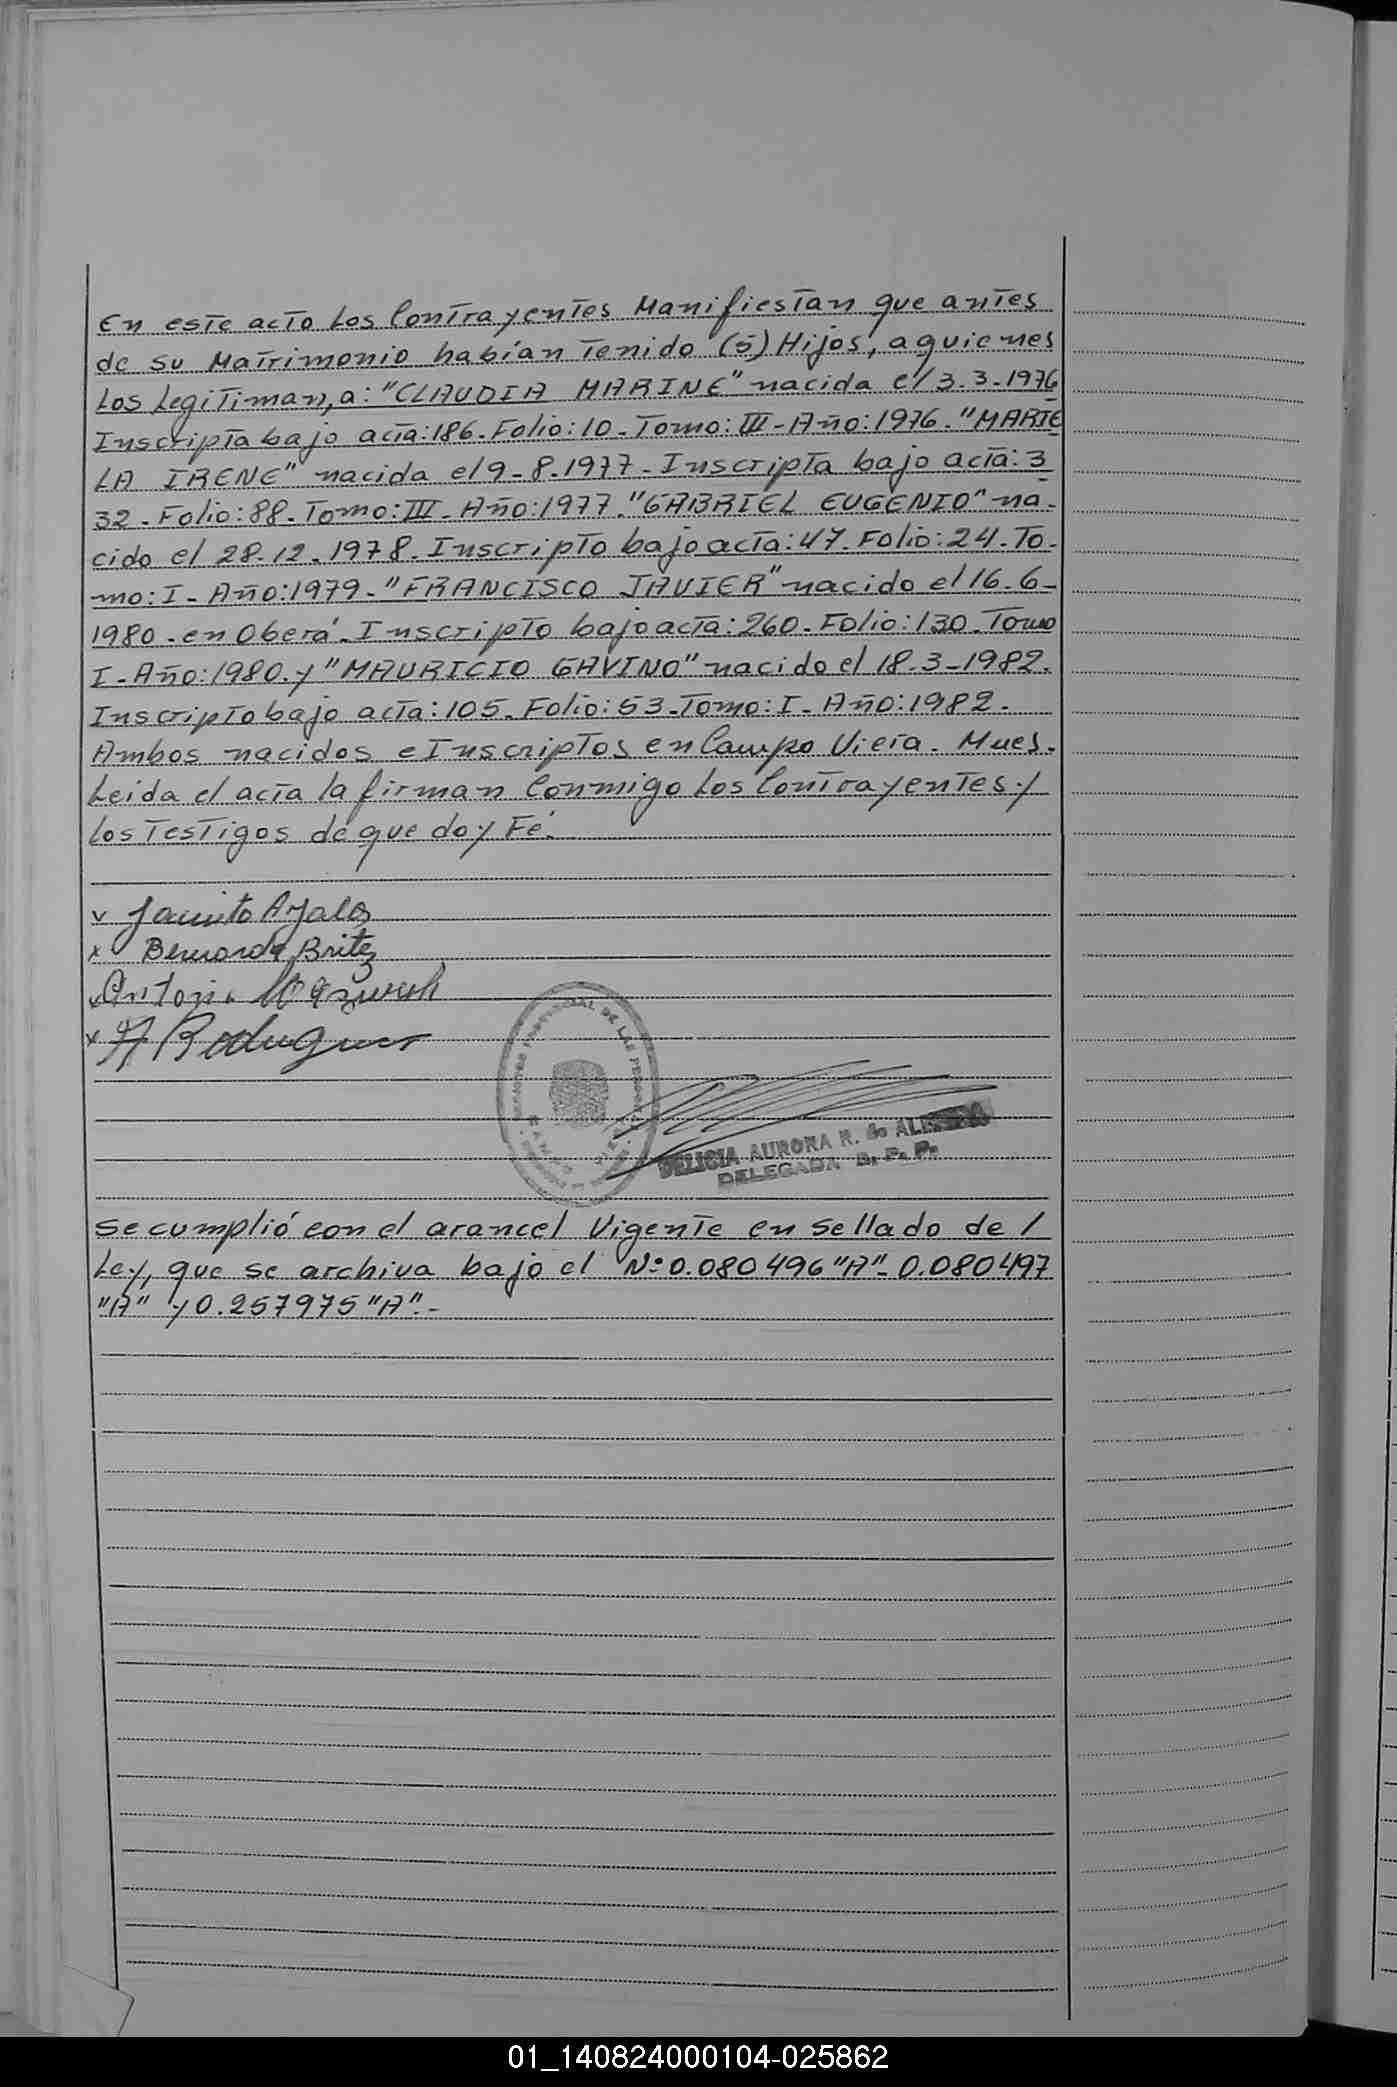 En este acto Los Contrayentes Manifiestan que antes
de su Matrimonio habían Tenido (5) Hijos, a quienes
Los Legitiman, a: "CLAUDIA MARINE" nacida el 3.3-1976
Inscripta bajo acta: 186. Folio: 10 - Tomo: III - Año: 1976. "MARIE
LA IRENE" nacida el 9-8.1977 - Inscripta bajo acta: 3
32. Folio: 88. Tomo: III - Año: 1977. "GABRIEL EUGENIO" na-
cido el 28.12.1978. Inscripto bajo acta: 47. Folio: 24. To-
mo: I - Año: 1979 - "FRANCISCO JAVIER" nacido el 16-6-
1980 - en Oberá - Inscripto bajo acta: 260 - Folio: 130 - Tomo
I - Año: 1980. y "MAURICIO GAVINO" nacido el 18.3-1982.
Inscripto bajo acta: 105 - Folio: 53 - Tomo: I - Año: 1982 -
Ambos nacidos e Inscriptos en Campo Viera. Mnes.
Leida el acta la firman Conmigo Los Contrayentes y
Los Testigos de que doy Fé.
v Jacinto Ayala
x Bernarda Britez
v Antonio
x A Rodriguez
DE LAS PERSONAS
DELICIA AURORA R. de
DELEGADA R. P. P.
Se cumplió con el arancel Vigente en Sellado de /
Ley, que se archiva bajo el Nº 0.080496 "A" - 0.080497
"A" y 0.257975 "A". -
01_140824000104-025862